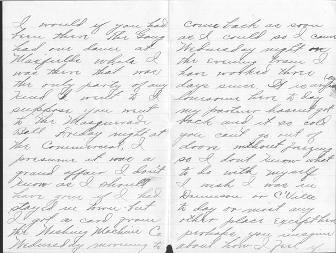 I would if you had
been there The Gang
had one dance at
while I
was there that was
the only party of any
kind I went to I
suppose you went
to the Masquerade
Ball Friday night at
the Commercial, I
presume it was a
grand affair I don't
know as I should
have gone if I had
stayed in town but
I got a card from
the Washing Machine Co
Wednesday morning to
come back as soon
as I could so I came
Wednesday night on
the evening train I
have worked three
days since It is awful
lonesome here to
my partner hasn't got
back and it so cold
you can't go out of
doors without freezing
so I dont know what
to do with myself
I wish I was in
Dennison or C'Ville
to day or most any
other place except here
perhaps you imagine
about how I feel if